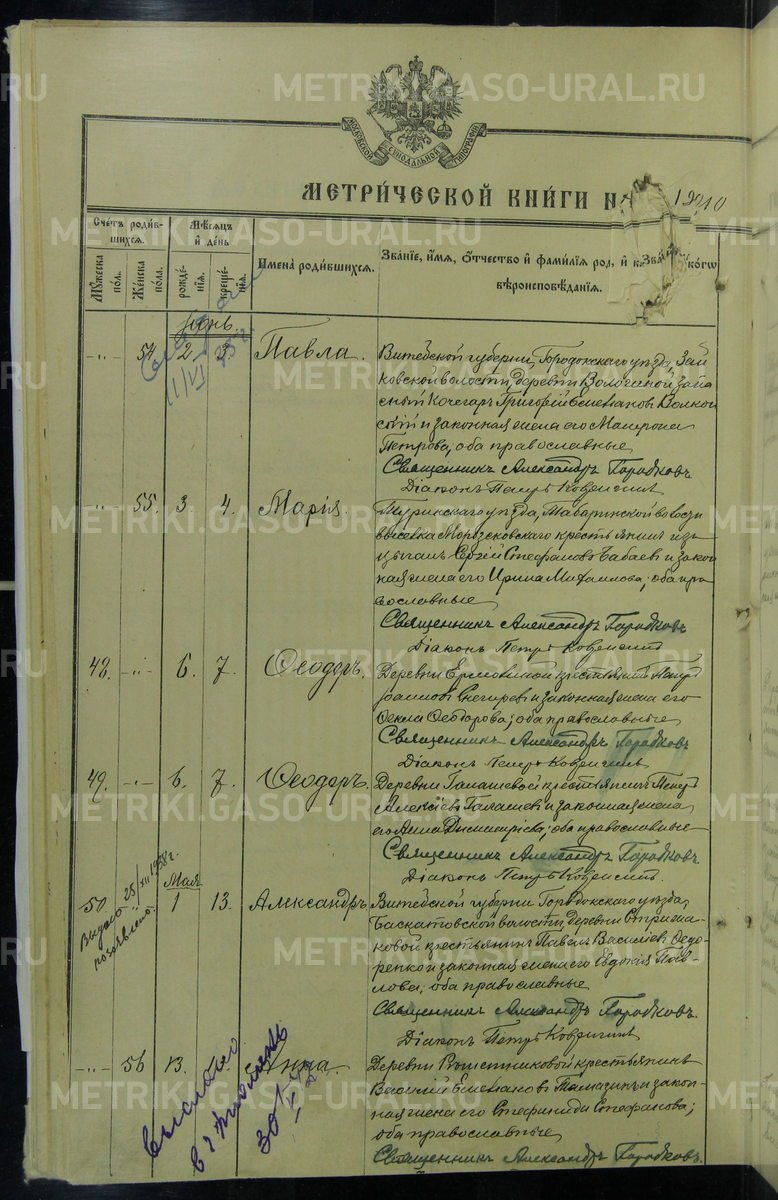 METRIKI.GASO-URAL.RU
МОСКОВСКОЙ СѴНОДАЛЬНОЙ ТИПОГРАФІИ
МЕТРИ́ЧЕСКОЙ КНИ́ГИ Н 1910
Сче́тъ роди́вшихся.
Мѣ́сяцъ и҆ де́нь
Имена̀ роди́вшихся.
Зва́нїе, и҆́мѧ, ѻ҆́тчество и҆ фами́лїѧ род, и҆ к
вѣроисповѣ́данїѧ.
Му́жеска по́л.
Же́нска по́ла.
рожде́нїѧ.
креще́нїѧ.
Іюнь.
54 2 3 Павла.
Витебской губерніи, Городокскаго уѣзда, Зай
ковской волости, деревни Волошиной запа
сный Кочегаръ Григорій Емельяновъ
и законная жена его Матрона
Петрова, оба православные
Священникъ Александръ Городковъ
Діаконъ Петръ Ковригинъ
55. 3. 4. Марія.
Туринскаго уѣзда, Табаринской волости
выселка Морозковскаго крестьянинъ изъ
цыганъ Сергій Стефановъ Бабаевъ и закон
ная жена его Ирина Михаилова, оба пра
вославные
Священникъ Александръ Городковъ
Діаконъ Петръ Ковригинъ
48. 6. 7. Ѳеодоръ.
Деревни Ермолиной крестьянинъ Петръ
Іоанновъ Снегиревъ и законная жена его
Ѳекла Ѳеодорова; оба православные
Священникъ Александръ Городковъ
Діаконъ Петръ Ковригинъ
49. 6. 7. Ѳеодоръ.
Деревни Галашевой крестьянинъ Петръ
Алексіевъ Галашевъ и законная жена
его Анна Димитріева; оба православные
Священникъ Александръ Городковъ
Діаконъ Петръ Ковригинъ.
Мая
50. 1 13. Александръ
Выдано 25/XII 1938 г.
Витебской губерніи Городокскаго уѣзда,
волости, деревни
ковой крестьянинъ Павелъ Василіевъ Ѳедо-
ренко и законная жена его Евдокія Пав
лова; оба православные
Священникъ Александръ Городковъ.
Діаконъ Петръ Ковригинъ
56 13. Анна.
Деревни Решетниковой крестьянинъ
Василій Емельяновъ и закон-
ная жена его Стефанида Стефанова;
оба православные
Священникъ Александръ Городковъ.
выслано